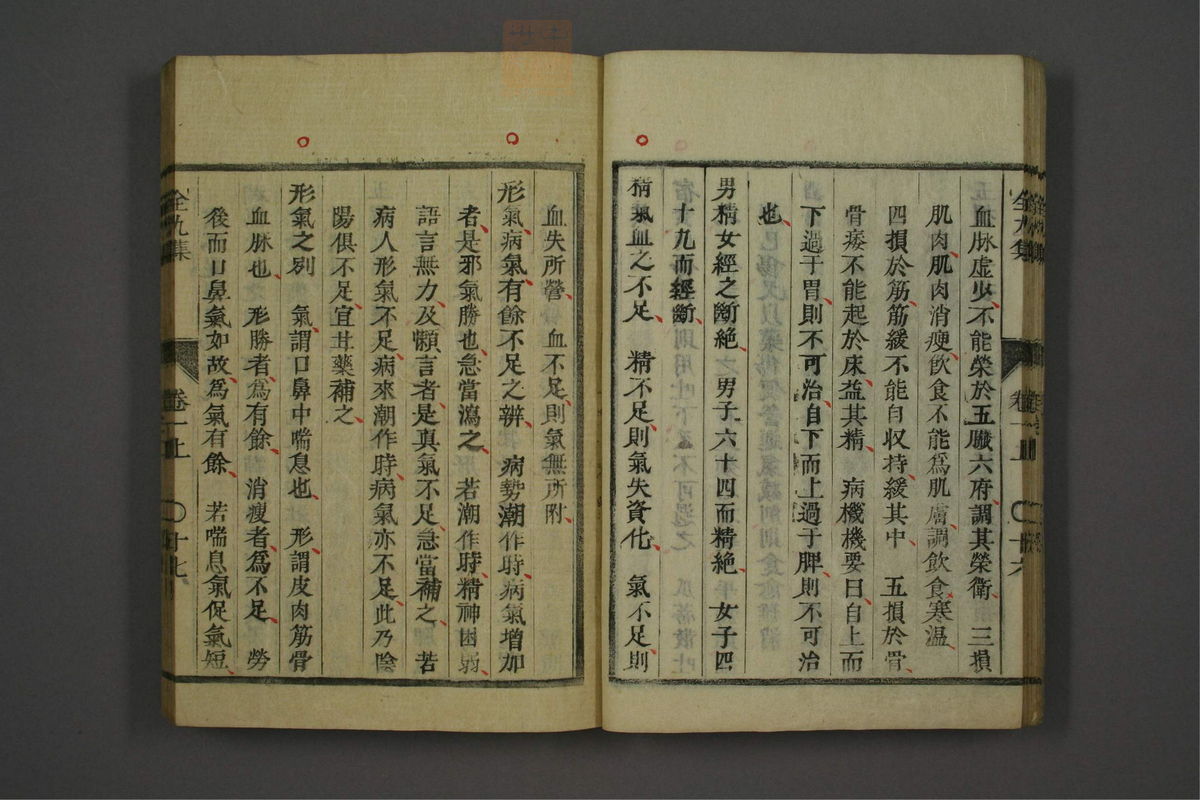 血脉虚少不能榮於五臓六府調其榮衛　三損
肌肉肌肉消瘦飲食不能爲肌膚調飲食寒温
四損於筋筋緩不能自収持緩其中　五損於骨
骨痿不能起於床益其精　病機機要曰自上而
下過于胃則不可治自下而上過于脾則不可治
也
男精女經之斷絶　男子六十四而精絶　女子四
十九而經斷
精氣血之不足　精不足則氣失資化　氣不足則
卷一上
十六
血失所營　血不足則氣無所附
形氣病氣有餘不足之辨　病勢潮作時病氣増加
者是邪氣勝也急當瀉之　若潮作時精神困弱
語言無力及懶言者是真氣不足急當補之　若
病人形氣不足病來潮作時病氣亦不足此乃陰
陽俱不足宜甘藥補之
形氣之別　氣謂口鼻中喘息也　形謂皮肉筋骨
血脉也　形勝者爲有餘　消瘦者爲不足　勞
後而口鼻氣如故爲氣有餘　若喘息氣促氣短
全九集
卷一上
十七